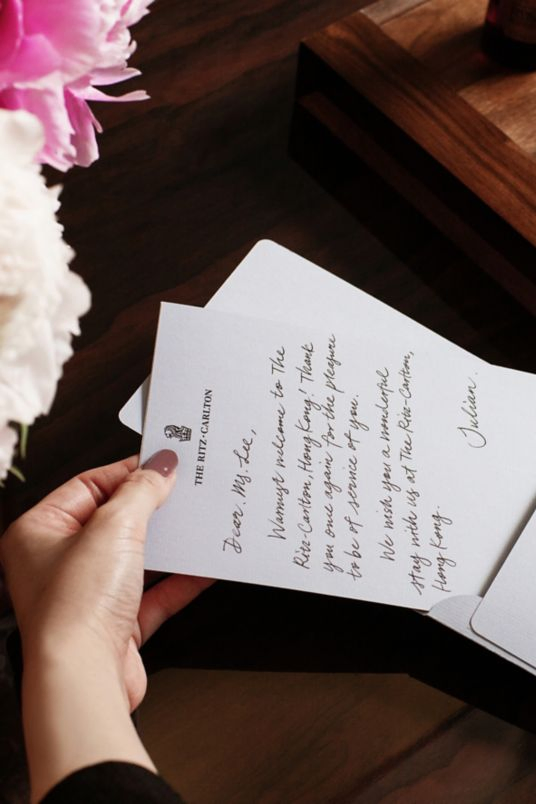 THE RITZ-CARLTON
Dear Ms. Lee,
Warmest welcome to The
Ritz-Carlton, Hong Kong! Thank
you once again for the pleasure
to be of service of you.
We wish you a wonderful
stay with us at The Ritz-Carlton,
Hong Kong.
Julian.